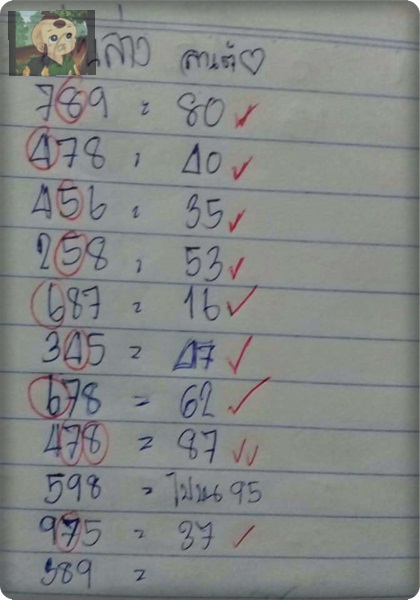 ล่าง สามตัว♡
789 = 80 ✓
478 = 40 ✓
456 = 35 ✓
258 = 53 ✓
687 = 16 ✓
345 = 47 ✓
678 = 62 ✓
478 = 87 ✓✓
598 = ไปบน 95
975 = 37 ✓
389 =